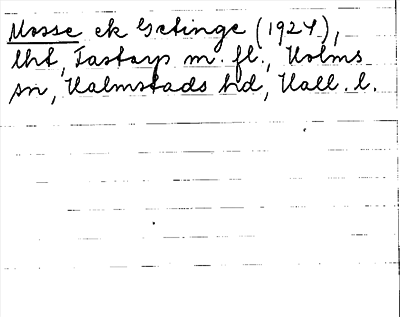 Mosse ek Getinge (1924),
lht, Tastarp m. fl., Holms
sn, Halmstads hd, Hall. l.